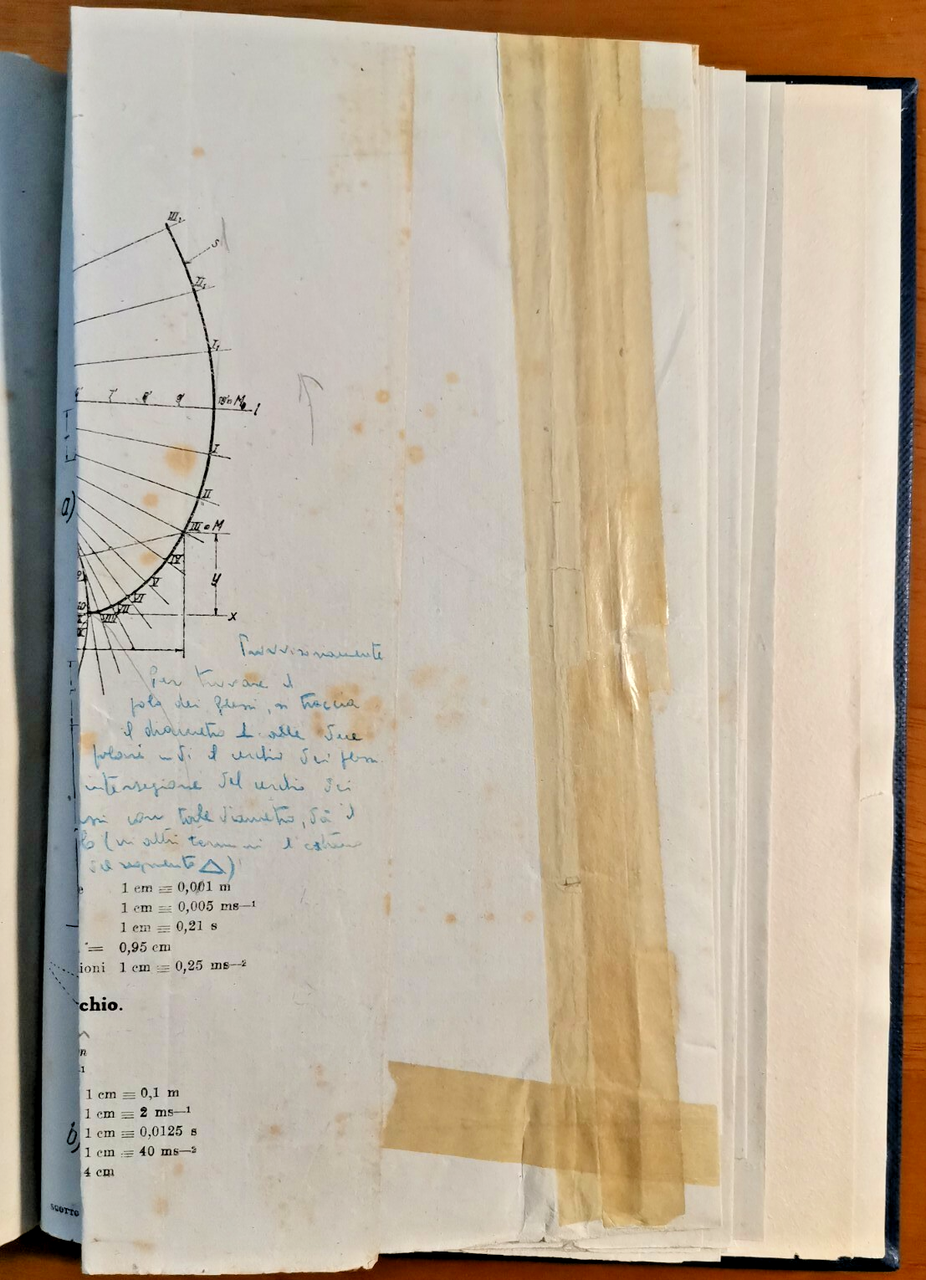 III₁
s
II₁
I₁
M₀ l
I
a) II
III ≡ M
IV
V
y
VI
VII
VIII
x
Provvisoriamente
Per trovare il
polo dei flessi, si traccia
il diametro ⊥ alle due
polari di il cerchio dei flessi.
intersezione del cerchio dei
con tale diametro, dà il
(in altri termini l'estremo
del segmento △)
1 cm ≡ 0,001 m
1 cm ≡ 0,005 ms—¹
1 cm ≡ 0,21 s
= 0,95 cm
ioni 1 cm ≡ 0,25 ms—²
chio.
1 cm ≡ 0,1 m
1 cm ≡ 2 ms—¹
b) 1 cm ≡ 0,0125 s
1 cm ≡ 40 ms—²
4 cm
SCOTTO